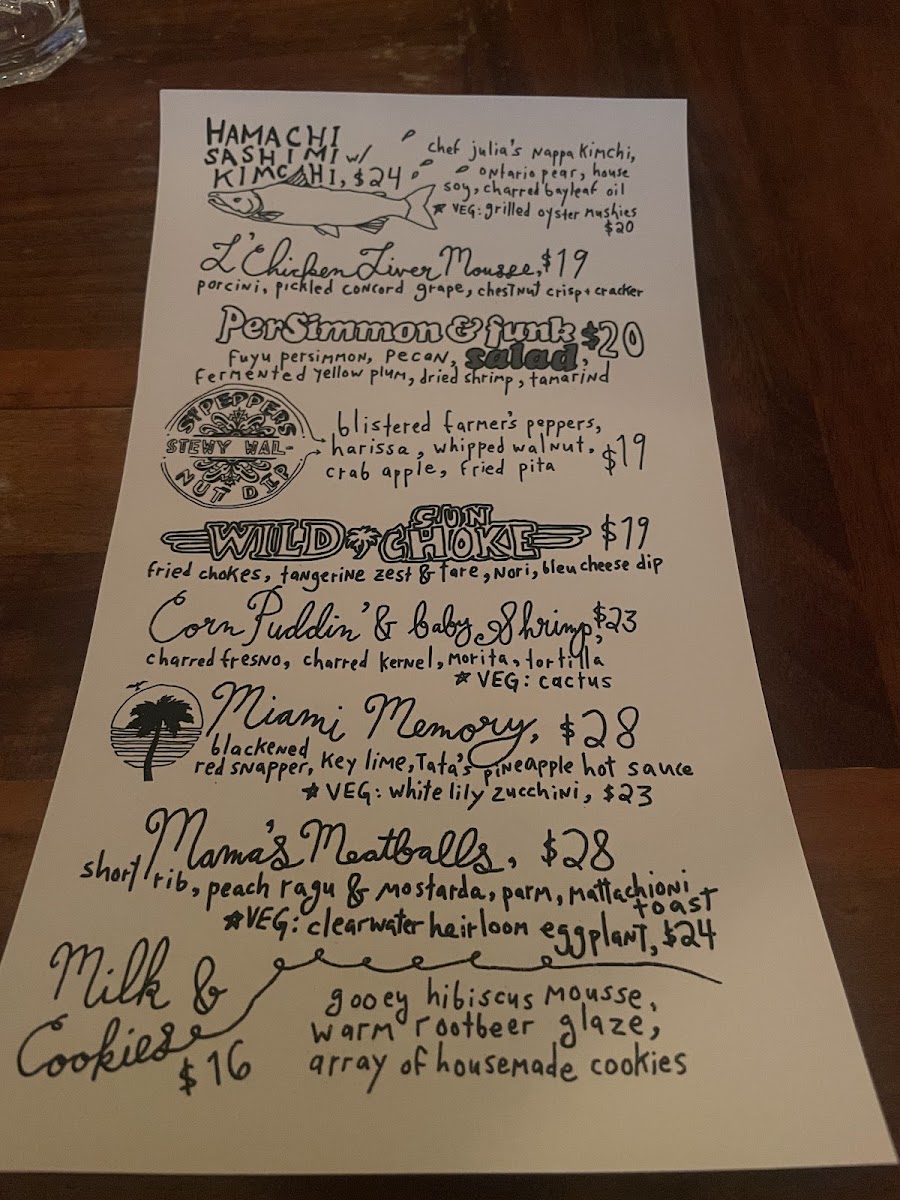 HAMACHI
SASHIMI w/
KIMCHI, $24
chef julia's Nappa Kimchi,
ontario pear, house
soy, charred bayleaf oil
★ VEG: grilled oyster mushies
$20
L'Chicken Liver Mousse, $19
porcini, pickled concord grape, chestnut crisp + cracker
Persimmon & funk $20
salad,
fuyu persimmon, pecan,
fermented yellow plum, dried shrimp, tamarind
SGT PEPPERS
STEWY WAL-
NUT DIP
blistered farmer's peppers,
harissa, whipped walnut,
crab apple, fried pita
$19
WILD SUN CHOKE $19
fried chokes, tangerine zest & tare, Nori, bleu cheese dip
Corn Puddin' & baby Shrimp, $23
charred fresno, charred kernel, morita, tortilla
★ VEG: cactus
Miami Memory, $28
blackened
red snapper, key lime, Tata's pineapple hot sauce
★ VEG: white lily zucchini, $23
Mama's Meatballs, $28
short rib, peach ragu & mostarda, parm, mattachioni
toast
★VEG: clearwater heirloom eggplant, $24
Milk &
Cookies
$16
gooey hibiscus mousse,
warm rootbeer glaze,
array of housemade cookies